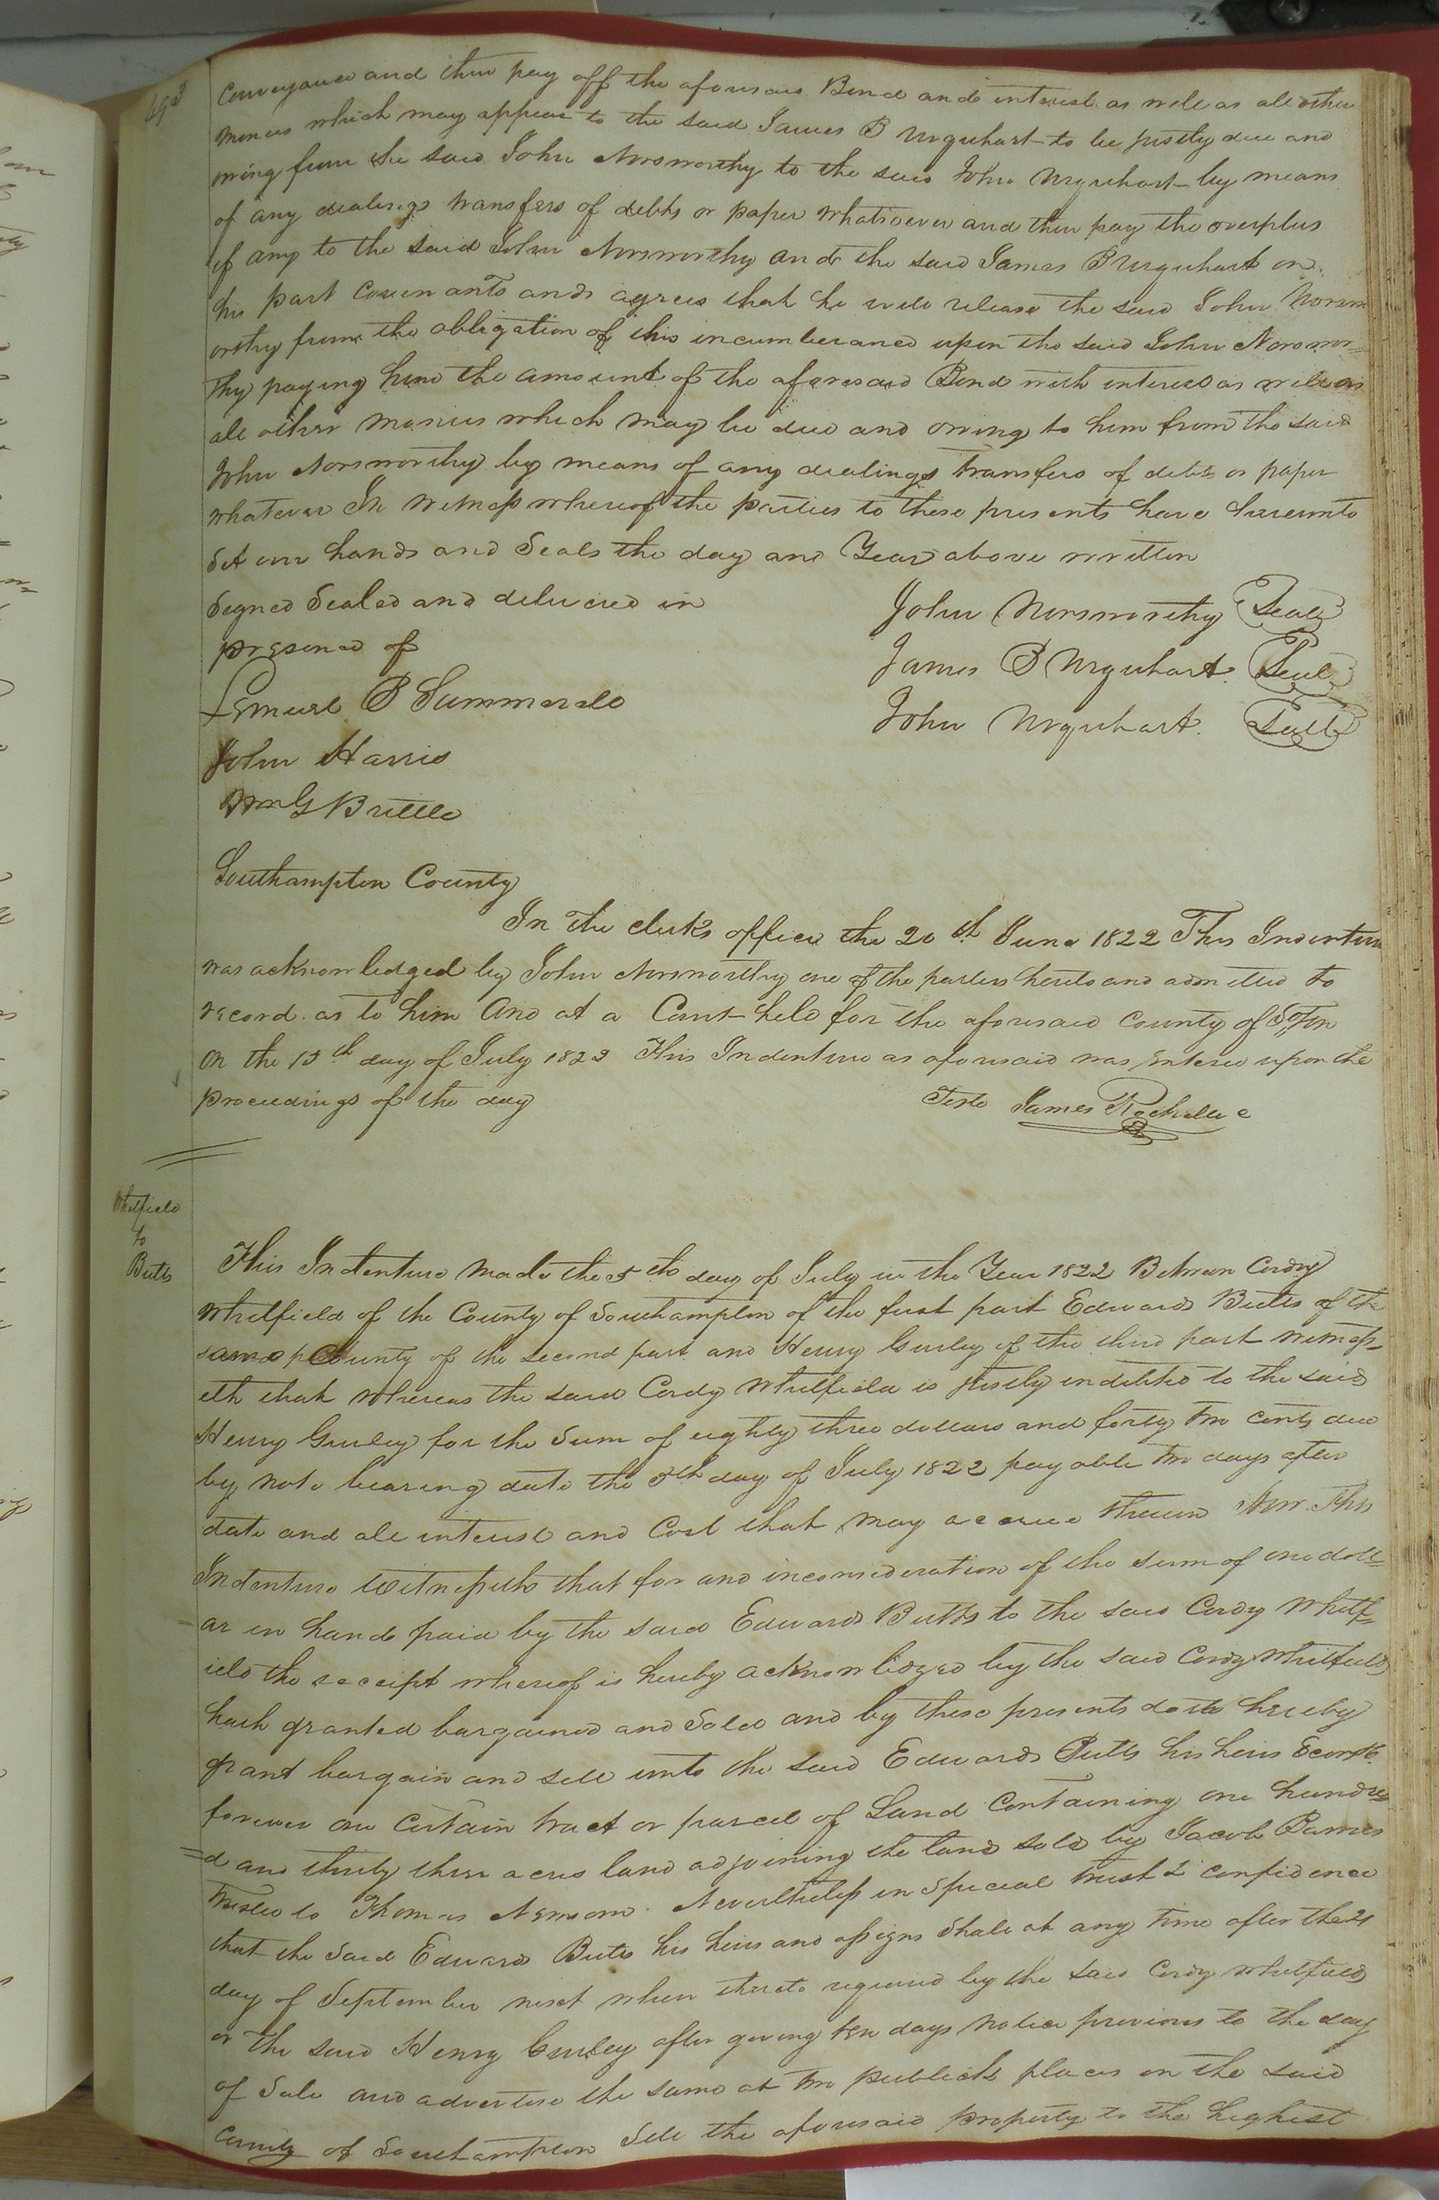 conveyance and then pay off the aforesaid Bond and interest as well as all other
monies which may appear to the said James B Urquhart to be justly due and
owing from the said John Norsworthy to the said John Urquhart by means
of any dealings transfers of debts or paper whatsoever and then pay the overplus
if any to the said John Norsworthy and the said James B Urquhart on
his part covenants and agrees that he will release the said John Norsw
orthy from the obligation of this incumberance upon the said John Norswor=
thy paying him the amount of the aforesaid Bond with interest as well as
all other monies which may be due and owing to him from the said
John Norsworthy by means of any dealings transfers of debts or paper
whatever In witness whereof the parties to these presents have hereunto
Set our hands and Seals the day and Year above written
Signed Sealed and delivered in
presence of
John Norsworthy Seal
James B Urquhart Seal
John Urquhart Seal
Lemuel B Summerell
John Harris
Wm G Brittle
Southampton County
In the clerks office the 20th June 1822 This Indenture
was acknowledged by John Norsworthy one of the parties hereto and admitted to
record as to him And at a Court held for the aforesaid county of Soton
on the 15th day of July 1822 This Indenture as aforesaid was entered upon the
proceedings of the day
Teste James Rochelle c
Whitfield
to
Butts
This Indenture made the 5th day of July in the Year 1822 Between Cordy
Whitfield of the County of Southampton of the first part Edward Butts of the
same County of the second part and Henry Gurley of the third part witness=
eth that whereas the said Cordy Whitfield is justly indebted to the said
Henry Gurley for the Sum of eighty three dollars and forty two cents due
by note bearing date the 5th day of July 1822 payable two days after
date and all interest and Cost that may accrue thereon Now This
Indenture Witnesseth that for and inconsideration of the sum of one doll=
ar in hand paid by the said Edward Butts to the said Cordy Whitf=
ield the receipt whereof is hereby acknowledged by the said Cordy Whitfield
hath granted bargained and Sold and by these presents doth hereby
grant bargain and sell unto the said Edward Butts his heirs
forever one certain tract or parcel of Land Containing one hundre
=d and thirty three acres land adjoining the land sold by Jacob Barnes
Trustee to Thomas Newsom Nevertheless in Special trust & confidence
that the said Edward Butts his heirs and assigns Shall at any time after the 21
day of September next when thereto required by the said Cordy Whitfield
or the said Henry Gurley after giving ten days notice previous to the day
of Sale and advertise the same at two publick places in the said
County of Southampton Sell the aforesaid property to the highest